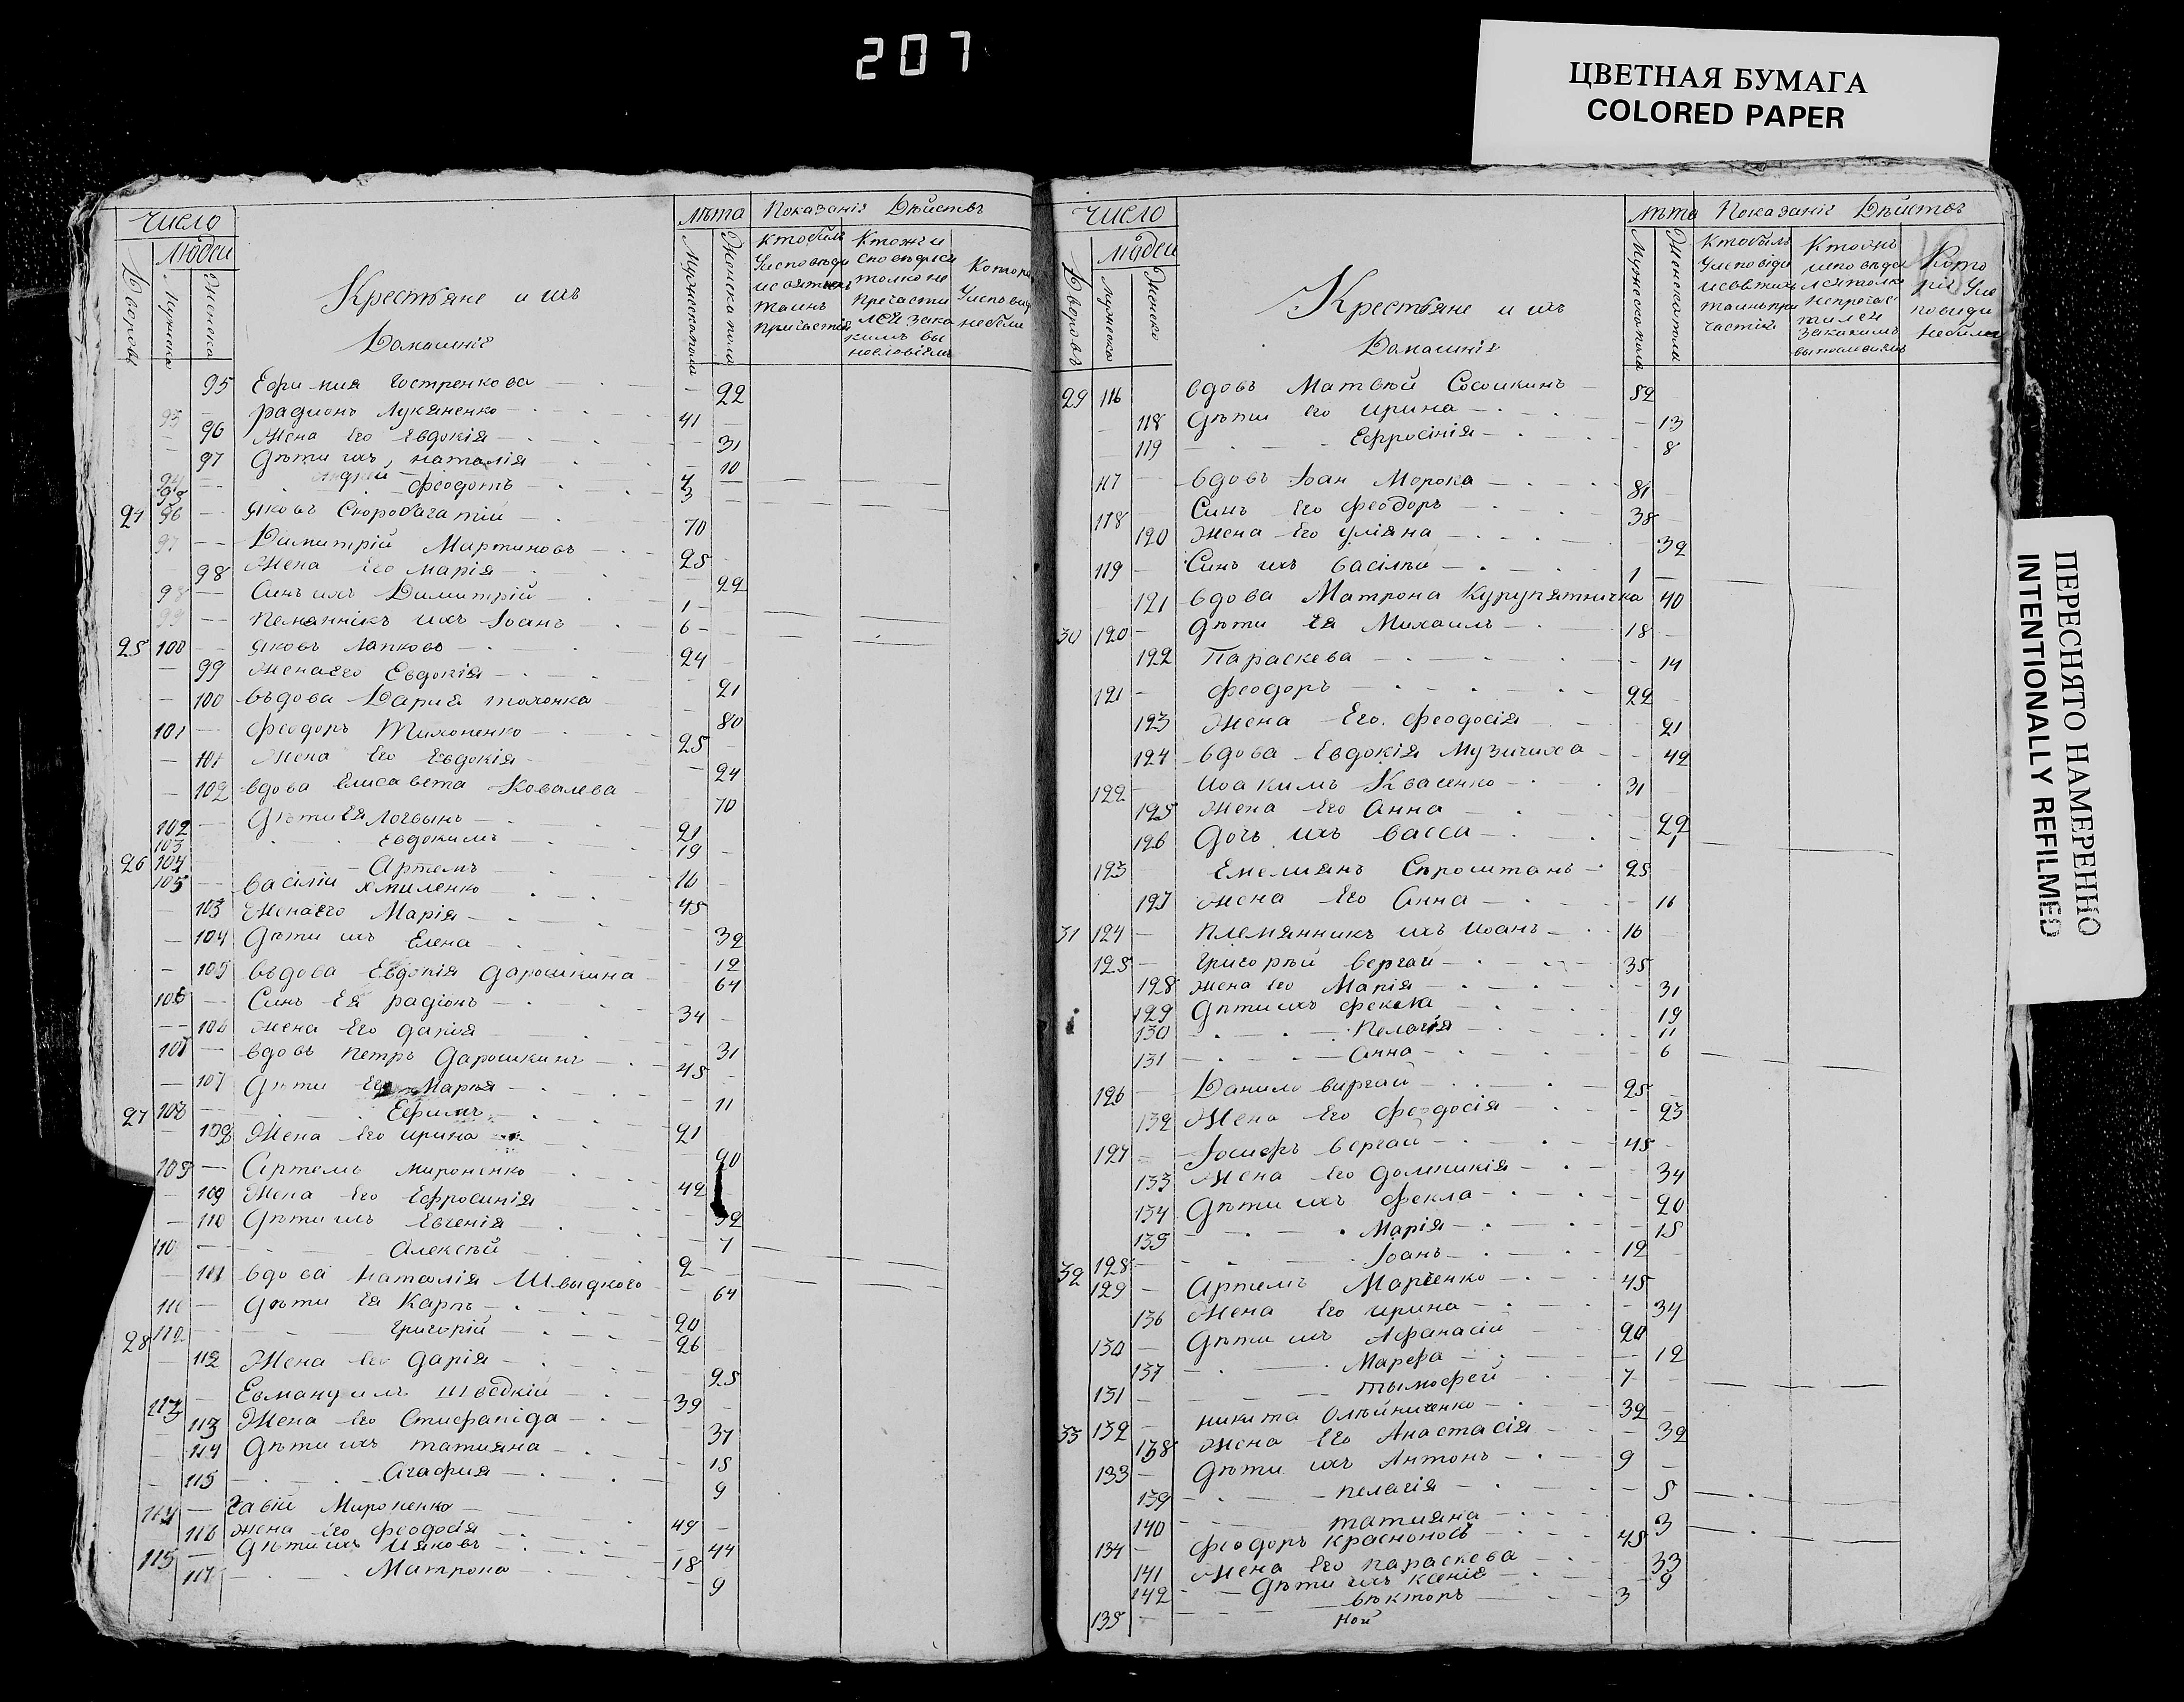 207
ЦВЕТНАЯ БУМАГА
COLORED PAPER
ПЕРЕСНЯТО НАМЕРЕННО
INTENTIONALLY REFILMED
Число
Людей
Дворовъ
Мужеска
Женска
Крестьяне и ихъ
Домашніе
Лѣта
Мужеска пола
Женска пола
Показаніе Дѣйствъ
95 Ефимия Костренкова 22
95 Радионъ Лукяненко 41
96 Жена Его Евдокія 31
97 Дѣти ихъ наталія 10
94 Андрей 4
95 Феодотъ 3
24 96 Яковъ Скоробагатій 70
97 Димитрій Мартиновъ 25
98 Жена Его Марія 22
98 Синъ ихъ Димитрій 1
99 Пеманнікъ ихъ Іоанъ 6
25 100 Яковъ Лапковъ 24
99 Жена Его Евдокія 21
100 Въдова Дария толочка 80
101 Феодоръ Тихоненко 25
101 Жена Его Евдокія 24
102 Вдова Елисавета Ковалева 70
102 Дѣти Ея Логвынъ 21
103 Евдокимъ 19
26 104 Артемъ 16
105 Василій Хмиленко 45
103 Жена Его Марія 32
104 Дѣти ихъ Елена 12
105 Въдова Евдокія Дарошкина 64
106 Синъ Ея радіонъ 34
106 Жена Его Дарія 31
107 Вдовъ Петръ Дарошкинъ 45
107 Дѣти Его Марья 11
27 108 Ефимъ 21
108 Жена Его Ирина 20
109 Артемъ Мироненко 42
109 Жена Его Ефросинія 32
110 Дѣти ихъ Евгенія 7
110 Алексѣй 2
111 Вдова Наталія Швыдкого 64
111 Дѣти Ея Карпъ 20
28 112 Григорій 26
112 Жена Его Дарія 25
113 Евмануилъ Шведкій 39
113 Жена Его Стисфаніда 37
114 Дѣти ихъ Татияна 15
115 Агафия 9
114 Савій Мироненко 49
116 Жена Его Феодосія 44
115 Дѣти ихъ Ияковъ 18
117 Матрона 9
Число
Людей
Дворовъ
Мужеско
Женско
Крестьяне и ихъ
Домашнія
Лѣта
Мужеска пола
Женска пола
Показаніе Дѣйствъ
29 116 Вдовъ Матвѣй Сошкинъ 52
118 Дѣти Его Ирина 13
119 Ефросінія 8
117 Вдовъ Іоан Морока 81
118 Синъ Его Феодоръ 38
120 Жена Его Уліяна 32
119 Синъ ихъ Василій 1
121 Вдова Матрона Курупятничка 40
30 120 Дѣти Ея Михаилъ 18
122 Параскева 14
121 Феодоръ 22
123 Жена Его Феодосія 21
124 Вдова Евдокія Музичиха 42
122 Иоакимъ Квасенко 31
125 Жена Его Анна 22
126 Дочь ихъ Васса 1
123 Емелиянъ Спроштанъ 25
127 Жена Его Анна 16
31 124 Племянникъ ихъ Иоанъ 16
125 Григорѣй Вергай 35
128 Жена Его Марія 31
129 Дѣти ихъ Фекела 19
130 Пелагія 11
131 Анна 6
126 Данило Виргай 25
132 Жена Его Феодосія 23
127 Іосифъ Вергай 45
133 Жена Его Домникія 34
134 Дѣти ихъ Фекла 20
135 Марія 15
128 Іоанъ 12
32 129 Артемъ Марченко 45
136 Жена Его Ирина 34
130 Дѣти ихъ Афанасій 20
137 Марфа 12
131 Тымофей 7
33 132 Никита Олѣйниченко 32
138 Жена Его Анастасія 32
133 Дѣти ихъ Антонъ 9
139 Пелагія 5
140 Татияна 3
134 Феодоръ Красноносъ 45
141 Жена Его Параскева 33
142 Дѣти ихъ Ксенія 9
135 Вѣкторъ 3